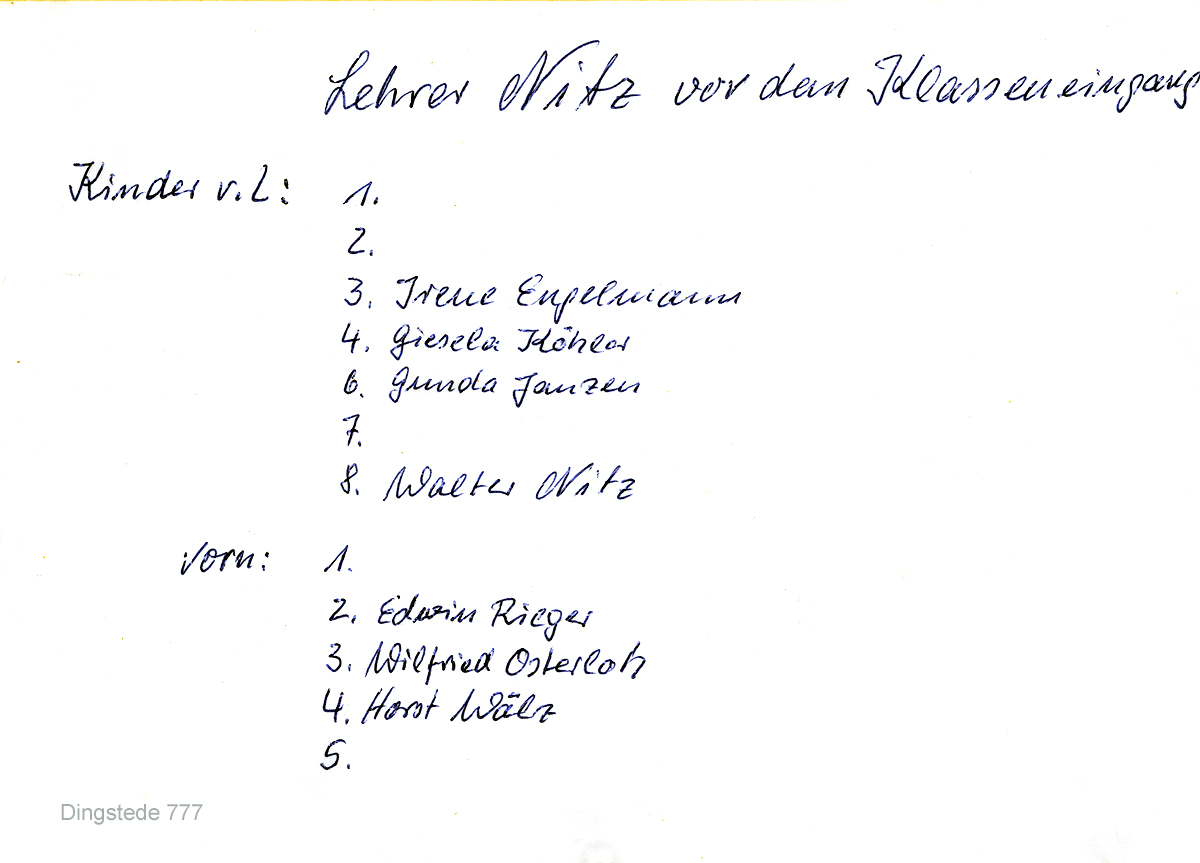 Lehrer Nitz vor dem Klasseneingang
Kinder v.L: 1.
2.
3. Irene Engelmann
4. Giesela Köhler
6. Gunda Janzen
7.
8. Walter Nitz
vorn: 1.
2. Edwin Rieger
3. Wilfried Osterloh
4. Horst Wälz
5.
Dingstede 777